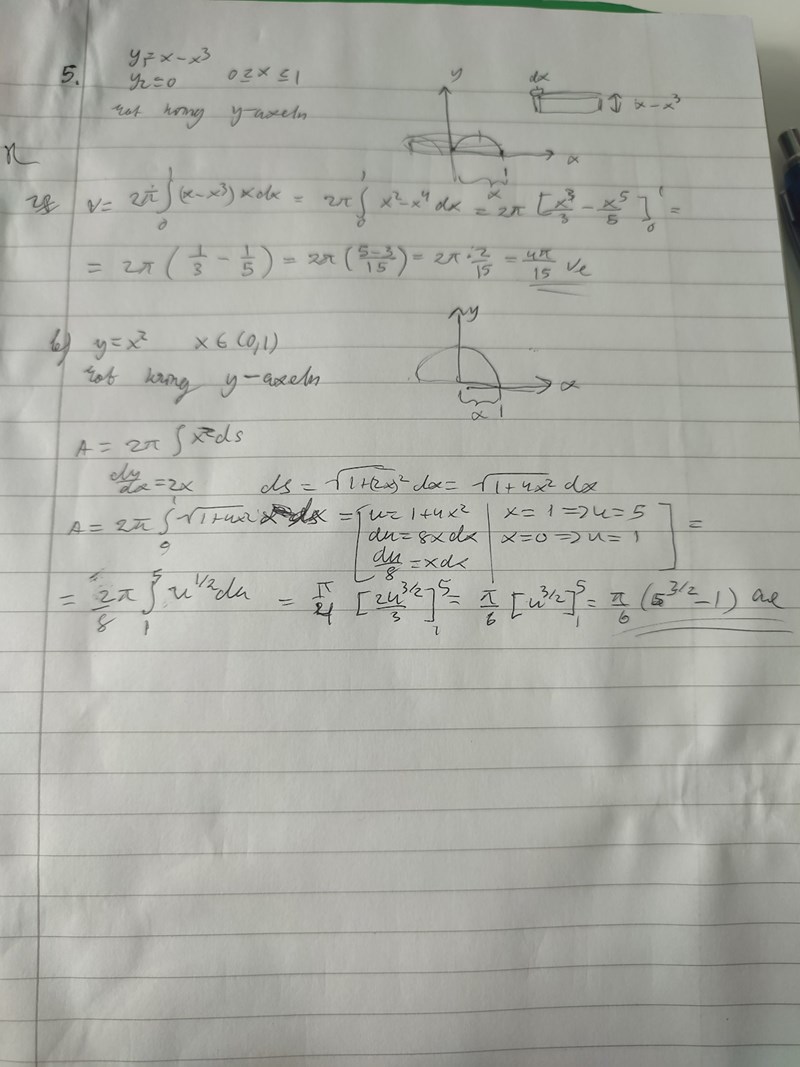 5. y₁=x-x³
y₂=0 0≥x≤1
rot kring y-axeln
y
dx
x-x³
x
x 1
V= 2π∫₀¹(x-x³)xdx = 2π∫₀¹ x²-x⁴ dx = 2π [x³/3 - x⁵/5]₀¹ =
= 2π(1/3 - 1/5) = 2π(5-3/15) = 2π·2/15 = 4π/15 ve
b) y=x² x∈(0,1)
rot kring y-axeln
y
x
x 1
A = 2π∫x ds
dy/dx=2x ds = √1+(2x)² dx = √1+4x² dx
A = 2π∫₀¹√1+4x² x dx = [u=1+4x² | x=1=>u=5
du=8xdx | x=0=>u=1
du/8=xdx ] =
= 2π/8 ∫₁⁵ u^1/2 du = π/4 [2u^3/2/3]₁⁵ = π/6 [u^3/2]₁⁵ = π/6 (5^3/2-1) ae